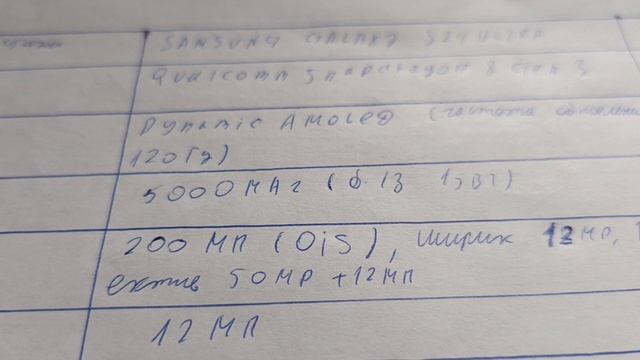 SAMSUNG GALAXY S24 ULTRA
Qualcomm Snapdragon 8 Gen 3
Dynamic AMOLED (частота
120Гц)
5000МАг (б. ІЗ 15ВТ)
200 МП (OiS), ширик 12МР,
50МР + 12МП
12 МП